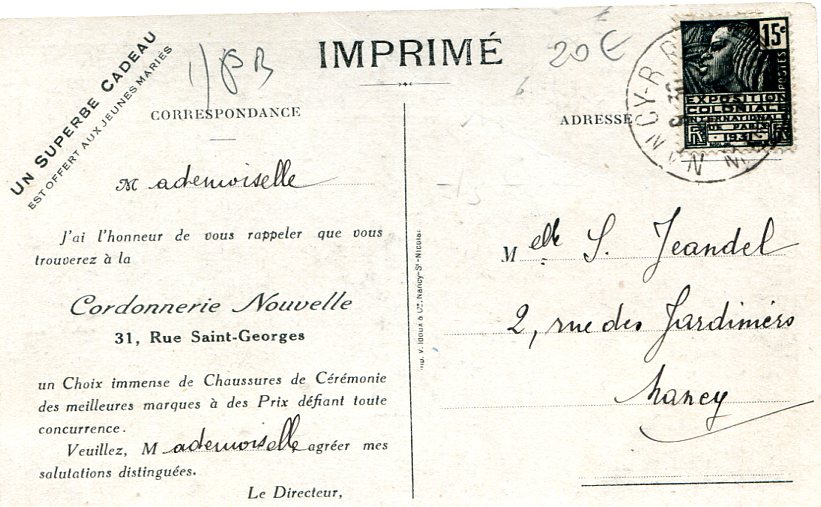 UN SUPERBE CADEAU
EST OFFERT AUX JEUNES MARIÉS
IMPRIMÉ
20€
CORRESPONDANCE
Mademoiselle
J'ai l'honneur de vous rappeler que vous
trouverez à la
Cordonnerie Nouvelle
31, Rue Saint-Georges
un Choix immense de Chaussures de Cérémonie
des meilleures marques à des Prix défiant toute
concurrence.
Veuillez, Mademoiselle agréer mes
salutations distinguées.
Le Directeur,
Imp. V. Idoux & Cie, Nancy-St-Nicolas
ADRESSE
15c
POSTES
EXPOSITION
COLONIALE
INTERNATIONALE
DE PARIS
1931
NANCY-R
Melle S. Jeandel
2, rue des Jardiniers
Nancy